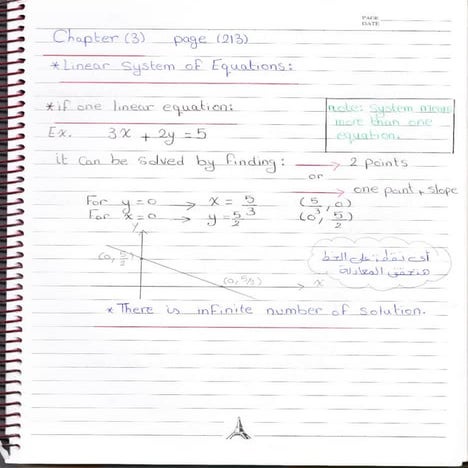 PAGE
DATE
Chapter (3) page (213)
* Linear System of Equations:
* if one linear equation:
note: System means
more than one
equation.
Ex. 3x + 2y = 5
it can be solved by finding: → 2 points
or
→ one point + slope
For y = 0 → x = 5/3 (5/3, 0)
For x = 0 → y = 5/2 (0, 5/2)
y
(0, 5/2)
(0, 5/3)
x
أي نقطة على الخط
هتحقق المعادلة
* There is infinite number of solution.